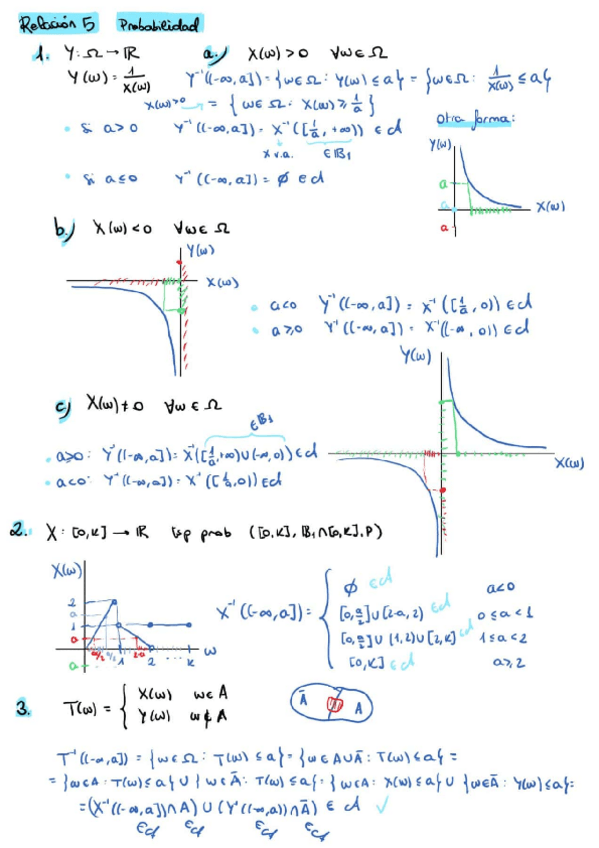 Relación 5 Probabilidad
1. Y: Ω → ℝ a.) X(ω) > 0 ∀ω ∈ Ω
Y(ω) = 1/X(ω) Y⁻¹((-∞, a]) = {ω ∈ Ω: Y(ω) ≤ a} = {ω ∈ Ω: 1/X(ω) ≤ a}
X(ω)>0 = {ω ∈ Ω: X(ω) ≥ 1/a}
• Si a > 0 Y⁻¹((-∞, a]) = X⁻¹([1/a, +∞)) ∈ 𝒜
X v.a. ∈ B₁
• Si a ≤ 0 Y⁻¹((-∞, a]) = ∅ ∈ 𝒜
Otra forma:
Y(ω)
a
a
a
X(ω)
b.) X(ω) < 0 ∀ω ∈ Ω
Y(ω)
X(ω)
• a<0 Y⁻¹((-∞, a]) = X⁻¹([1/a, 0)) ∈ 𝒜
• a≥0 Y⁻¹((-∞, a]) = X⁻¹((-∞, 0)) ∈ 𝒜
Y(ω)
X(ω)
c) X(ω) ≠ 0 ∀ω ∈ Ω
∈ B₁
• a≥0: Y⁻¹((-∞, a]) = X⁻¹([1/a, +∞) ∪ (-∞, 0)) ∈ 𝒜
• a<0: Y⁻¹((-∞, a]) = X⁻¹([1/a, 0)) ∈ 𝒜
2. X: [0, K] → ℝ Esp prob ([0, K], B₁∩[0, K], P)
X(ω)
2
a
1
a
a
a/2 a/2 1 2-a 2 K ω
X⁻¹((-∞, a]) =
∅ ∈ 𝒜 a<0
[0, a/2] ∪ [2-a, 2) ∈ 𝒜 0 ≤ a < 1
[0, a/2] ∪ (1, 2) ∪ [2, K] ∈ 𝒜 1 ≤ a < 2
[0, K] ∈ 𝒜 a ≥ 2
3. T(ω) = { X(ω) ω ∈ A
Y(ω) ω ∉ A
Ā A
T⁻¹((-∞, a]) = {ω ∈ Ω: T(ω) ≤ a} = {ω ∈ A∪Ā: T(ω) ≤ a} =
= {ω ∈ A: T(ω) ≤ a} ∪ {ω ∈ Ā: T(ω) ≤ a} = {ω ∈ A: X(ω) ≤ a} ∪ {ω ∈ Ā: Y(ω) ≤ a} =
= (X⁻¹((-∞, a]) ∩ A) ∪ (Y⁻¹((-∞, a]) ∩ Ā) ∈ 𝒜 ✓
∈𝒜 ∈𝒜 ∈𝒜 ∈𝒜